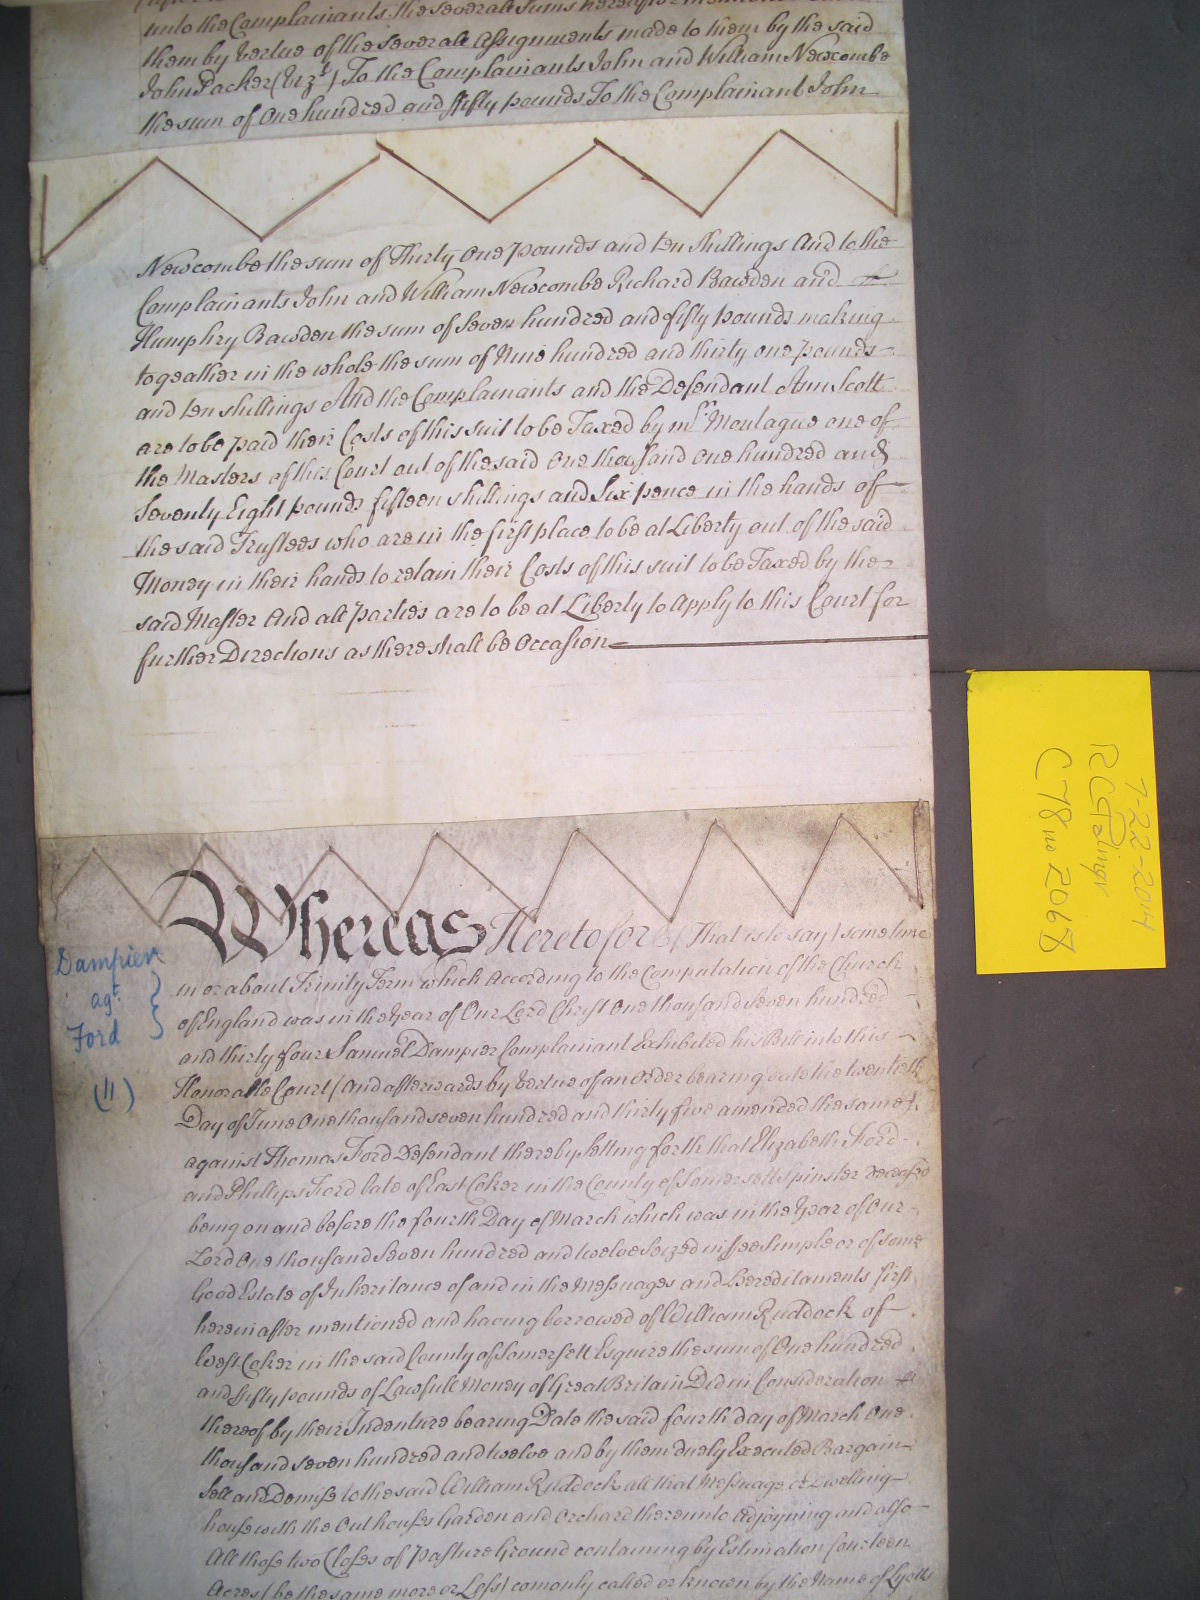 unto the Complainants the severall Sums
them by Vertue of the severall Assignments made to them by the said
John Packer (Vizt) To the Complainants John and William Newcombe
the sum of One hundred and fifty pounds To the Complainant John
Newcombe the sum of Thirty One pounds and ten shillings And to the
Complainants John and William Newcombe Richard Bawden and
Humphry Bawden the sum of Seven hundred and fifty pounds making
togeather in the whole the sum of Nine hundred and thirty one pounds
and ten shillings And the Complainants and the Defendant Ann Scott
are to be paid their Costs of this suit to be Taxed by mr. Montague one of
the Masters of this Court out of the said One thousand One hundred and
Seventy Eight pounds fifteen shillings and Six pence in the hands of
the said Trustees who are in the first place to be at Liberty out of the said
Money in their hands to retain their Costs of this suit to be Taxed by the
said Master And all parties are to be at Liberty to Apply to this Court for
further Directions as there shall be Occasion
Whereas Heretofore (That is to say) sometime
in or about Trinity Term which According to the Computation of the Church
of England was in the Year of Our Lord Christ One thousand Seven hundred
and thirty four Samuel Dampier Complainant Exhibited his Bill into this
Honorable Court (And afterwards by Vertue of an Order bearing date the twentieth
Day of June One thousand seven hundred and thirty five amended the same)
against Thomas Ford Defendant thereby setting forth that Elizabeth Ford
and Phillips Ford late of East Coker in the County of Somersett Spinster deceased
being on and before the fourth Day of March which was in the Year of Our
Lord One thousand Seven hundred and twelve Seized in fee Simple or of some
Good Estate of Inheritance of and in the Messuages and Hereditaments first
herein after mentioned and having borrowed of William Ruddock of
West Coker in the said County of Somersett Esquire the sum of One hundred
and fifty pounds of Lawfull Money of Great Britain Did in Consideration
thereof by their Indenture bearing Date the said fourth day of March One
thousand seven hundred and twelve and by them duely Executed Bargain
Sell and Demise to the said William Ruddock all that Messuage or Dwelling
house with the Outhouses Garden and Orchard thereunto Adjoyning and also
All those two Closes of Pasture Ground containing by Estimation fourteen
Acres (be the same more or Less) comonly called or known by the Name of
Dampier
agt.
Ford
(11)
7-22-2014
RCPalmer
C78 no 2068